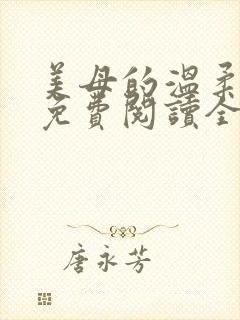 美母的溫柔
免費閱讀全
唐永芳